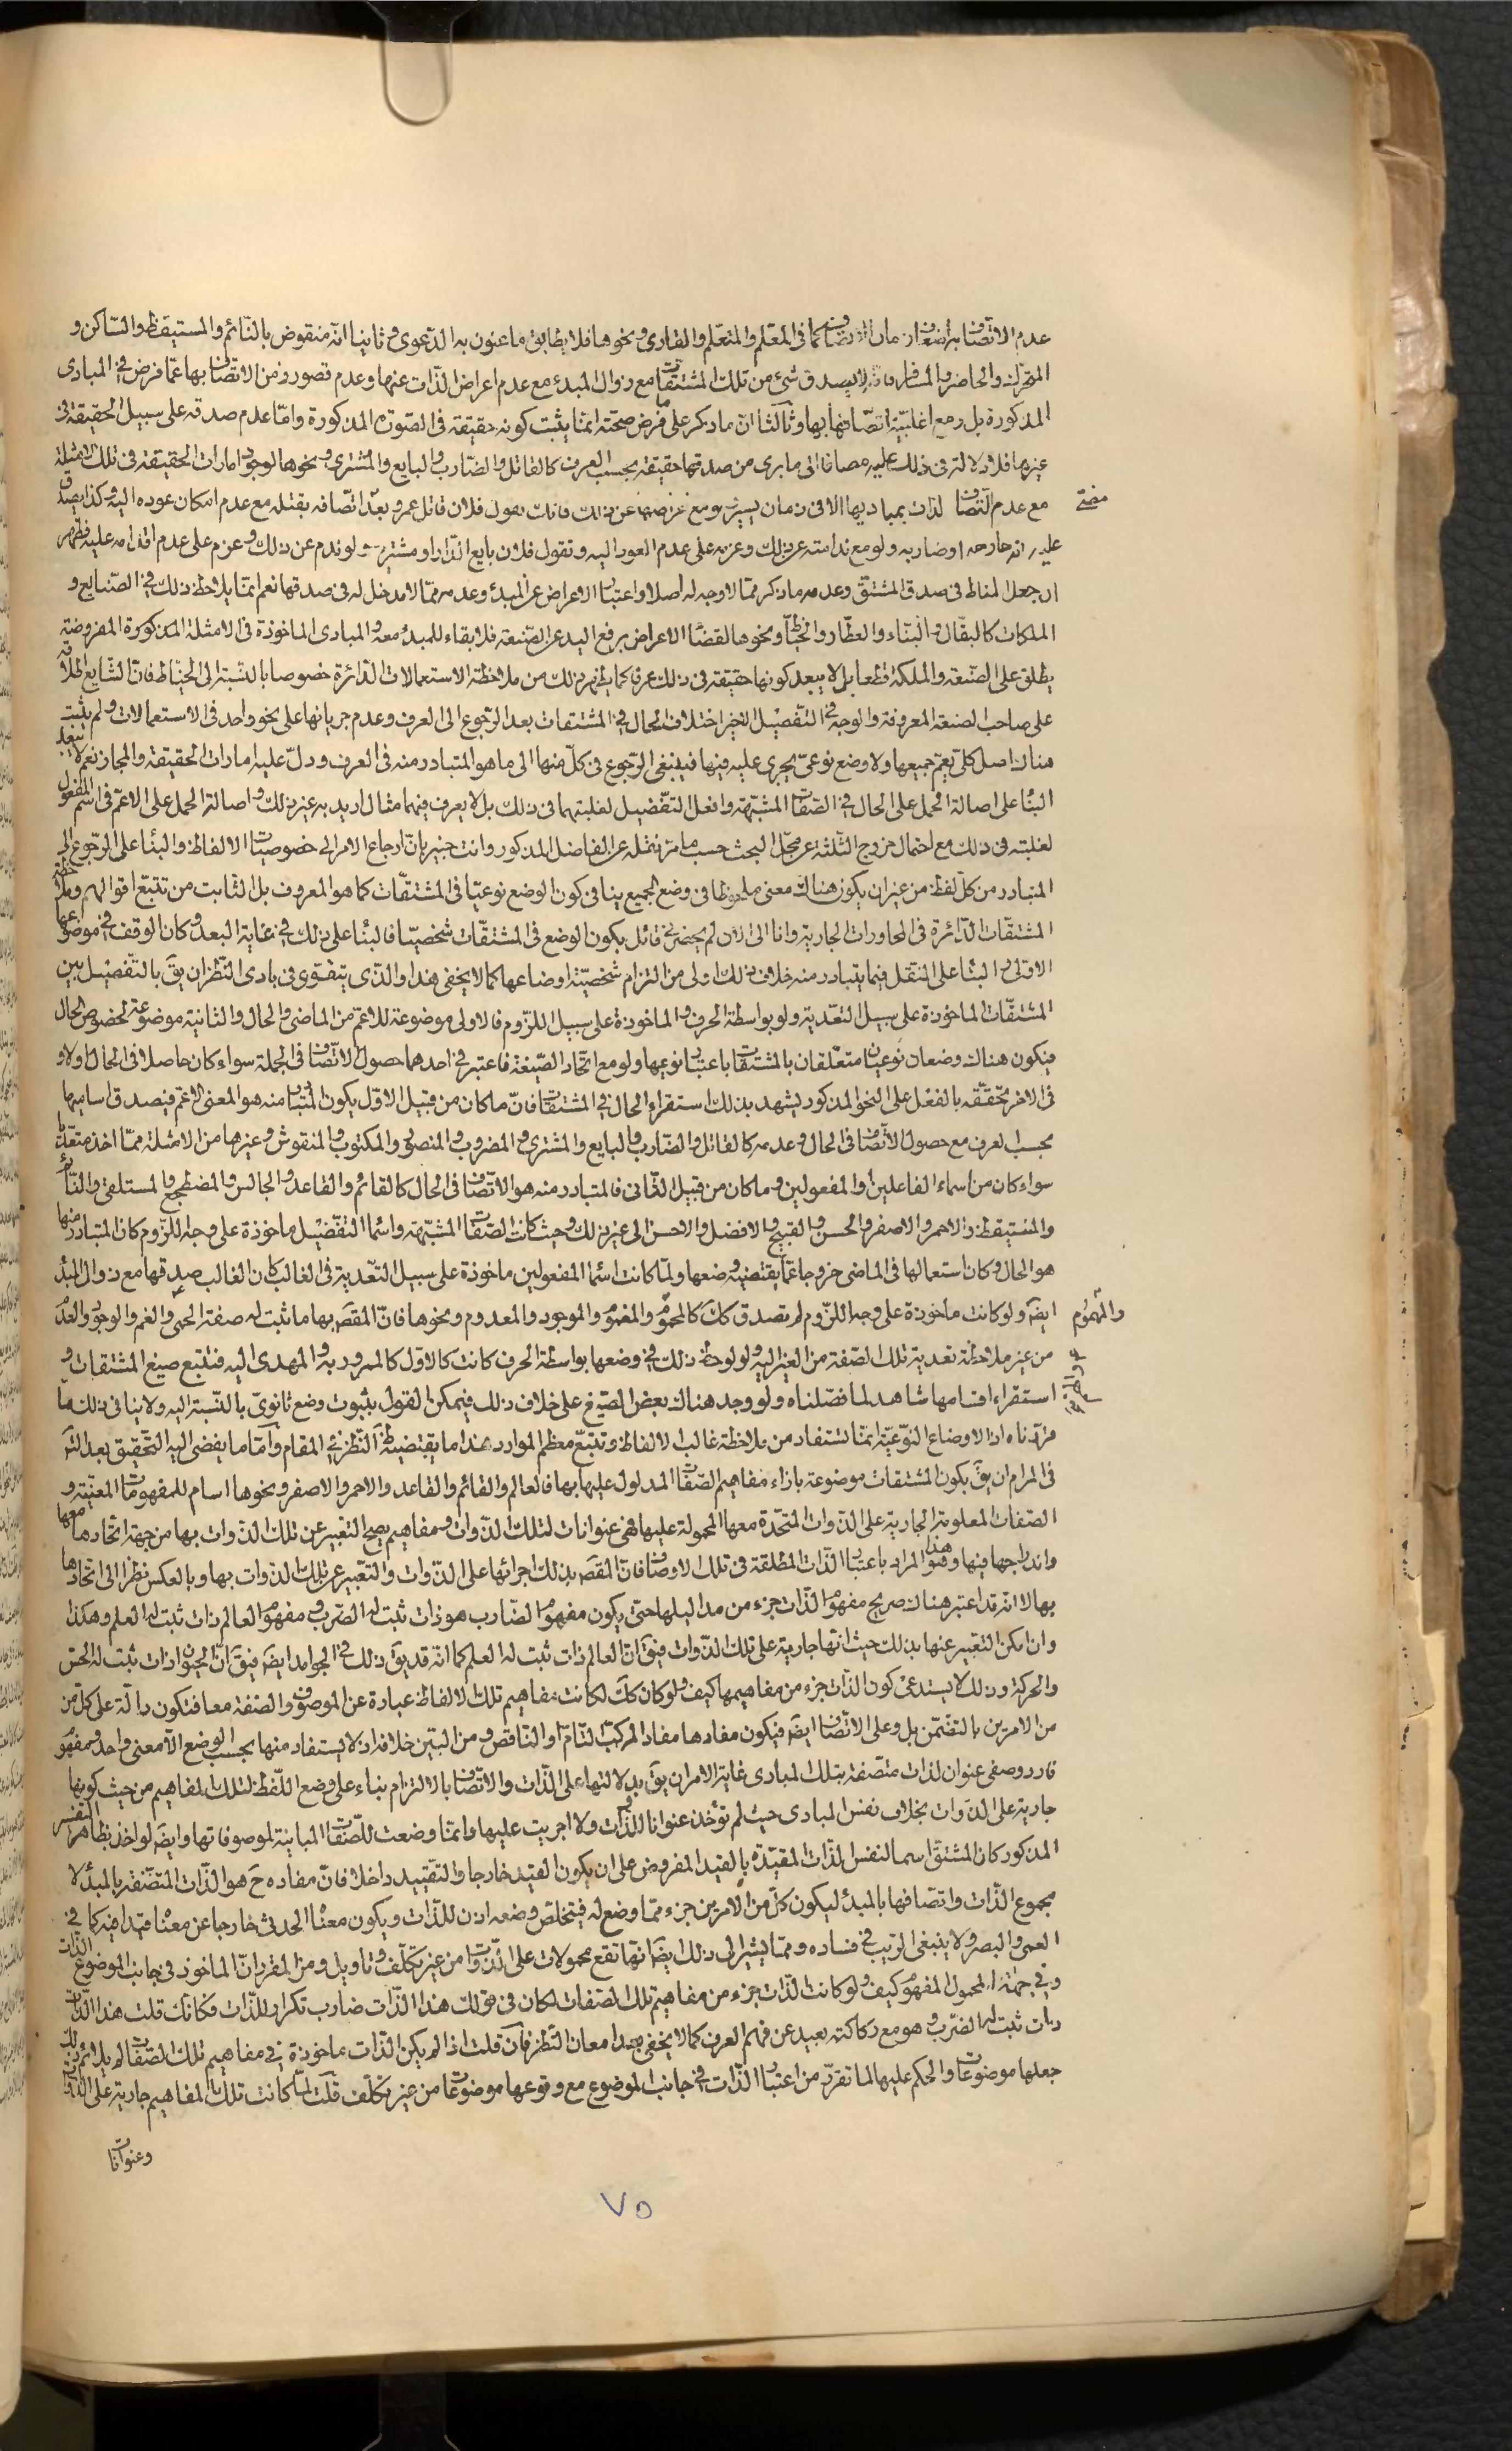 عدم الاتصاف به اضعاف زمان الاتصاف كما فى المعلم والمتعلم والقارى ونحوها فلا يطابق ما عنون به الدعوى وثانيا انه منقوض بالنائم والمستيقظ والساكن و
المتحرك والحاضر والمسافر فانه لا يصدق شئ من تلك المشتقات مع زوال المبدء مع عدم اعراض الذات عنها وعدم قصور زمن الاتصاف بها عما فرض فى المبادى
المذكورة بل ومع اغلبية اتصافها بها وثالثا ان ما ذكر على فرض صحته انما يثبت كونه حقيقة فى الصورة المذكورة واما عدم صدقه على سبيل الحقيقة فى
غيرها فلا دلالة فى ذلك عليه مضافا الى ما يرى من صدقها حقيقة بحسب العرف كالقاتل والضارب والبايع والمشترى ونحوها لوجود امارات الحقيقة فى تلك الامثلة
مع عدم اتصاف الذات بمباديها الا فى زمان يسير ومع عن ذلك فانك تقول فلان قاتل عمرو بعد اتصافه بقتله مع عدم امكان عوده اليه وكذا يصدق
عليه انه جارحه او ضاربه ولو مع ندامته عن ذلك وعزمه على عدم العود اليه وتقول فلان بايع الدار او مشتريه ولو ندم عن ذلك وعزم على عدم اقدامه عليه فظهر
ان جعل المناط فى صدق المشتق وعدمه ما ذكر مما لا وجه له اصلا واعتبار الاعراض عن المبدء وعدمه مما لا مدخل له فى صدقها نعم انما يلاحظ ذلك فى الصنايع و
الملكات كالبقال والبناء والعطار والخياط ونحوها لقضاء الاعراض برفع اليد عن الصنعة فلا بقاء للمبدء معه والمبادى الماخوذة فى الامثلة المذكورة المفروضة
يطلق على الصنعة والملكة قطعا بل لا يبعد كونها حقيقة فى ذلك عرفا كما يظهر ذلك من ملاحظة الاستعمالات الدائرة خصوصا بالنسبة الى الخياط فان الشايع اطلاقه
على صاحب الصنعة المعروفة والوجه فى التفصيل الاخير اختلاف الحال فى المشتقات بعد الرجوع الى العرف وعدم جريانها على نحو واحد فى الاستعمالات ولم يثبت
هناك اصل كلى يعم جميعها ولا وضع نوعى يجرى عليه فيها فينبغى الرجوع فى كل منها الى ما هو المتبادر منه فى العرف ودل عليه امارات الحقيقة والمجاز نعم لا يبعد
البناء على اصالة الحمل على الحال فى الصفات المشبهة وافعل التفضيل لغلبتهما فى ذلك بل لا يعرف فيهما مثال اريد به غير ذلك واصالة الحمل على الاعم فى اسم المفعول
لغلبته فى ذلك مع احتمال خروج الثلثة عن محل البحث حسب ما مر نقله عن الفاضل المذكور وانت خبير بان ارجاع الامر الى خصوصيات الالفاظ والبناء على الرجوع الى
المتبادر من كل لفظ من غير ان يكون هناك معنى ملحوظا فى وضع الجميع ينافى كون الوضع نوعيا فى المشتقات كما هو المعروف بل الثابت من تتبع اقوالهم وملاحظة
المشتقات الدائرة فى المحاورات الجارية وانا الى الان لم يحضرنى قائل بكون الوضع فى المشتقات شخصيا فالبناء على ذلك فى غاية البعد وكان الوقف فى موضوعها
الاولى والبناء على النقل فيما يتبادر منه خلاف ذلك اولى من التزام شخصية اوضاعها كما لا يخفى هذا والذى يتقوى فى بادى النظر ان يق بالتفصيل بين
المشتقات الماخوذة على سبيل التعدية ولو بواسطة الحرف والماخوذة على سبيل اللزوم فالاولى موضوعة للاعم من الماضى والحال والثانية موضوعة لخصوص الحال
فيكون هناك وضعان نوعيان متعلقان بالمشتقات باعتبار نوعيها ولو مع اتحاد الصيغة فاعتبر فى احدهما حصول الاتصاف فى الجملة سواء كان حاصلا فى الحال اولا و
فى الاخر تحققه بالفعل على النحو المذكور يشهد بذلك استقراء الحال فى المشتقات فان ما كان من قبيل الاول يكون المتبادر منه هو المعنى الاعم فيصدق اساميها
بحسب العرف مع حصول الاتصاف فى الحال وعدمه كالقاتل والضارب والبايع والمشترى والمضروب والمنصور والمكتوب والمنقوش وغيرها من الامثلة مما اخذ متعديا
سواء كان من اسماء الفاعلين او المفعولين وما كان من قبيل الثانى فالمتبادر منه هو الاتصاف فى الحال كالقائم والقاعد والجالس والمضطجع والمستلقى والنائم
والمستيقظ والاحمر والاصفر والحسن والقبيح والافضل والاحسن الى غير ذلك وحيث كانت الصفات المشبهة واسماء التفضيل ماخوذة على وجه اللزوم كان المتبادر منها
هو الحال وكان استعمالها فى الماضى خروجا عما يقتضيه وضعها ولما كانت اسماء المفعولين ماخوذة على سبيل التعدية فى الغالب كان الغالب صدقها مع زوال المبدء
ايضه ولو كانت ماخوذة على وجه اللزوم لم تصدق كك كالمحموم والمغموم والموجود والمعدوم ونحوها فان المقص بها ما ثبت له صفة الحمى والغم والوجود والعدم
والمهموم
من غير ملاحظة تعدية تلك الصفة من الغير اليه ولو لوحظ ذلك فى وضعها بواسطة الحرف كانت كالاول كالممرور به والمهدى اليه فتتبع صيغ المشتقات و
استقراء اقسامها شاهد لما فصلناه ولو وجد هناك بعض الصيغ على خلاف ذلك فيمكن القول بثبوت وضع ثانوى بالنسبة اليه ولا ينافى ذلك ما
قررناه اذ الاوضاع النوعية انما تستفاد من ملاحظة غالب الالفاظ وتتبع معظم الموارد هذا ما يقتضيه ظاهر النظر فى المقام واما ما يفضى اليه التحقيق بعد التامل
فى المرام ان يق بكون المشتقات موضوعة بازاء مفاهيم الصفات المدلول عليها بها فالعالم والقائم والقاعد والاحمر والاصفر ونحوها اسام للمفهومات المعينة و
الصفات المعلومة الجارية على الذوات المتحدة معها المحمولة عليها فهى عنوانات لتلك الذوات ومفاهيم يصح التعبير عن تلك الذوات بها من جهة اتحادها معها
واندراجها فيها وهذا هو المراد باعتبار الذات المطلقة فى تلك الاوصاف فان المقص بذلك اجرائها على الذوات والتعبير عن تلك الذوات بها وبالعكس نظرا الى اتحادها
بها لا انه قد اعتبر هناك صريح مفهوم الذات جزء من مداليلها حتى يكون مفهوم الضارب هو ذات ثبت له الضرب ومفهوم العالم ذات ثبت له العلم وهكذا
وان امكن التعبير عنها بذلك حيث انها جارية على تلك الذوات فيق ان العالم ذات ثبت له العلم كما انه قد يق ذلك فى الجوامد ايضه فيق ان الحيوان ذات ثبت له الحس
والحركة وذلك لا يستدعى كون الذات جزء من مفاهيمها كيف ولو كان كك لكانت مفاهيم تلك الالفاظ عبارة عن الموصوف والصفة معا فتكون دالة على كل من
من الامرين بالتضمن بل وعلى الاتصاف ايضه فيكون مفادها مفاد المركب التام او الناقص ومن البين خلافه اذ لا يستفاد منها بحسب الوضع الا معنى واحد ومفهوم
فارد وصفى عنوان لذات متصفة بتلك المبادى غاية الامر ان يق بدلالتها على الذات والاتصاف بالالتزام بناء على وضع اللفظ لتلك المفاهيم من حيث كونها
جارية على الذوات بخلاف نفس المبادى حيث لم تؤخذ عنوانا للذات ولا اجريت عليها وانما وضعت للصفات المباينة لموصوفاتها وايضه لو اخذ بظاهر التفسير
المذكور كان المشتق اسما لنفس الذات المقيدة بالقيد المفروض على ان يكون القيد خارجا والتقييد داخلا فان مفاده ح هو الذات المتصفة بالمبدء لا
مجموع الذات واتصافها بالمبدء ليكون كل من الامرين جزء مما وضع له فيتخلص وضعه اذن للذات ويكون معناه الحدثى خارجا عن معناه قيدا فيه كما فى
العمى والبصر ولا ينبغى الريب فى فساده ومما يشير الى ذلك ايضه انها تقع محمولات على الذوات من غير تكلف وتاويل ومن المقرر ان الماخوذ فى جانب الموضوع الذات
وفى جهة المحمول المفهوم كيف ولو كانت الذات جزء من مفاهيم تلك الصفات لكان فى قولك هذا الذات ضارب تكرار للذات فكانك قلت هذا الذات
ذات ثبت له الضرب وهو مع ركاكته بعيد عن فهم العرف كما لا يخفى بعد امعان النظر فان قلت اذا لم يكن الذات ماخوذة فى مفاهيم تلك الصفات لم يلائم ذلك
جعلها موضوعات والحكم عليها لما تقرر من اعتبار الذات فى جانب الموضوع مع وقوعها موضوعات من غير تكلف قلت لما كانت تلك المفاهيم جارية على الذوات
وعنوانات
٧٥